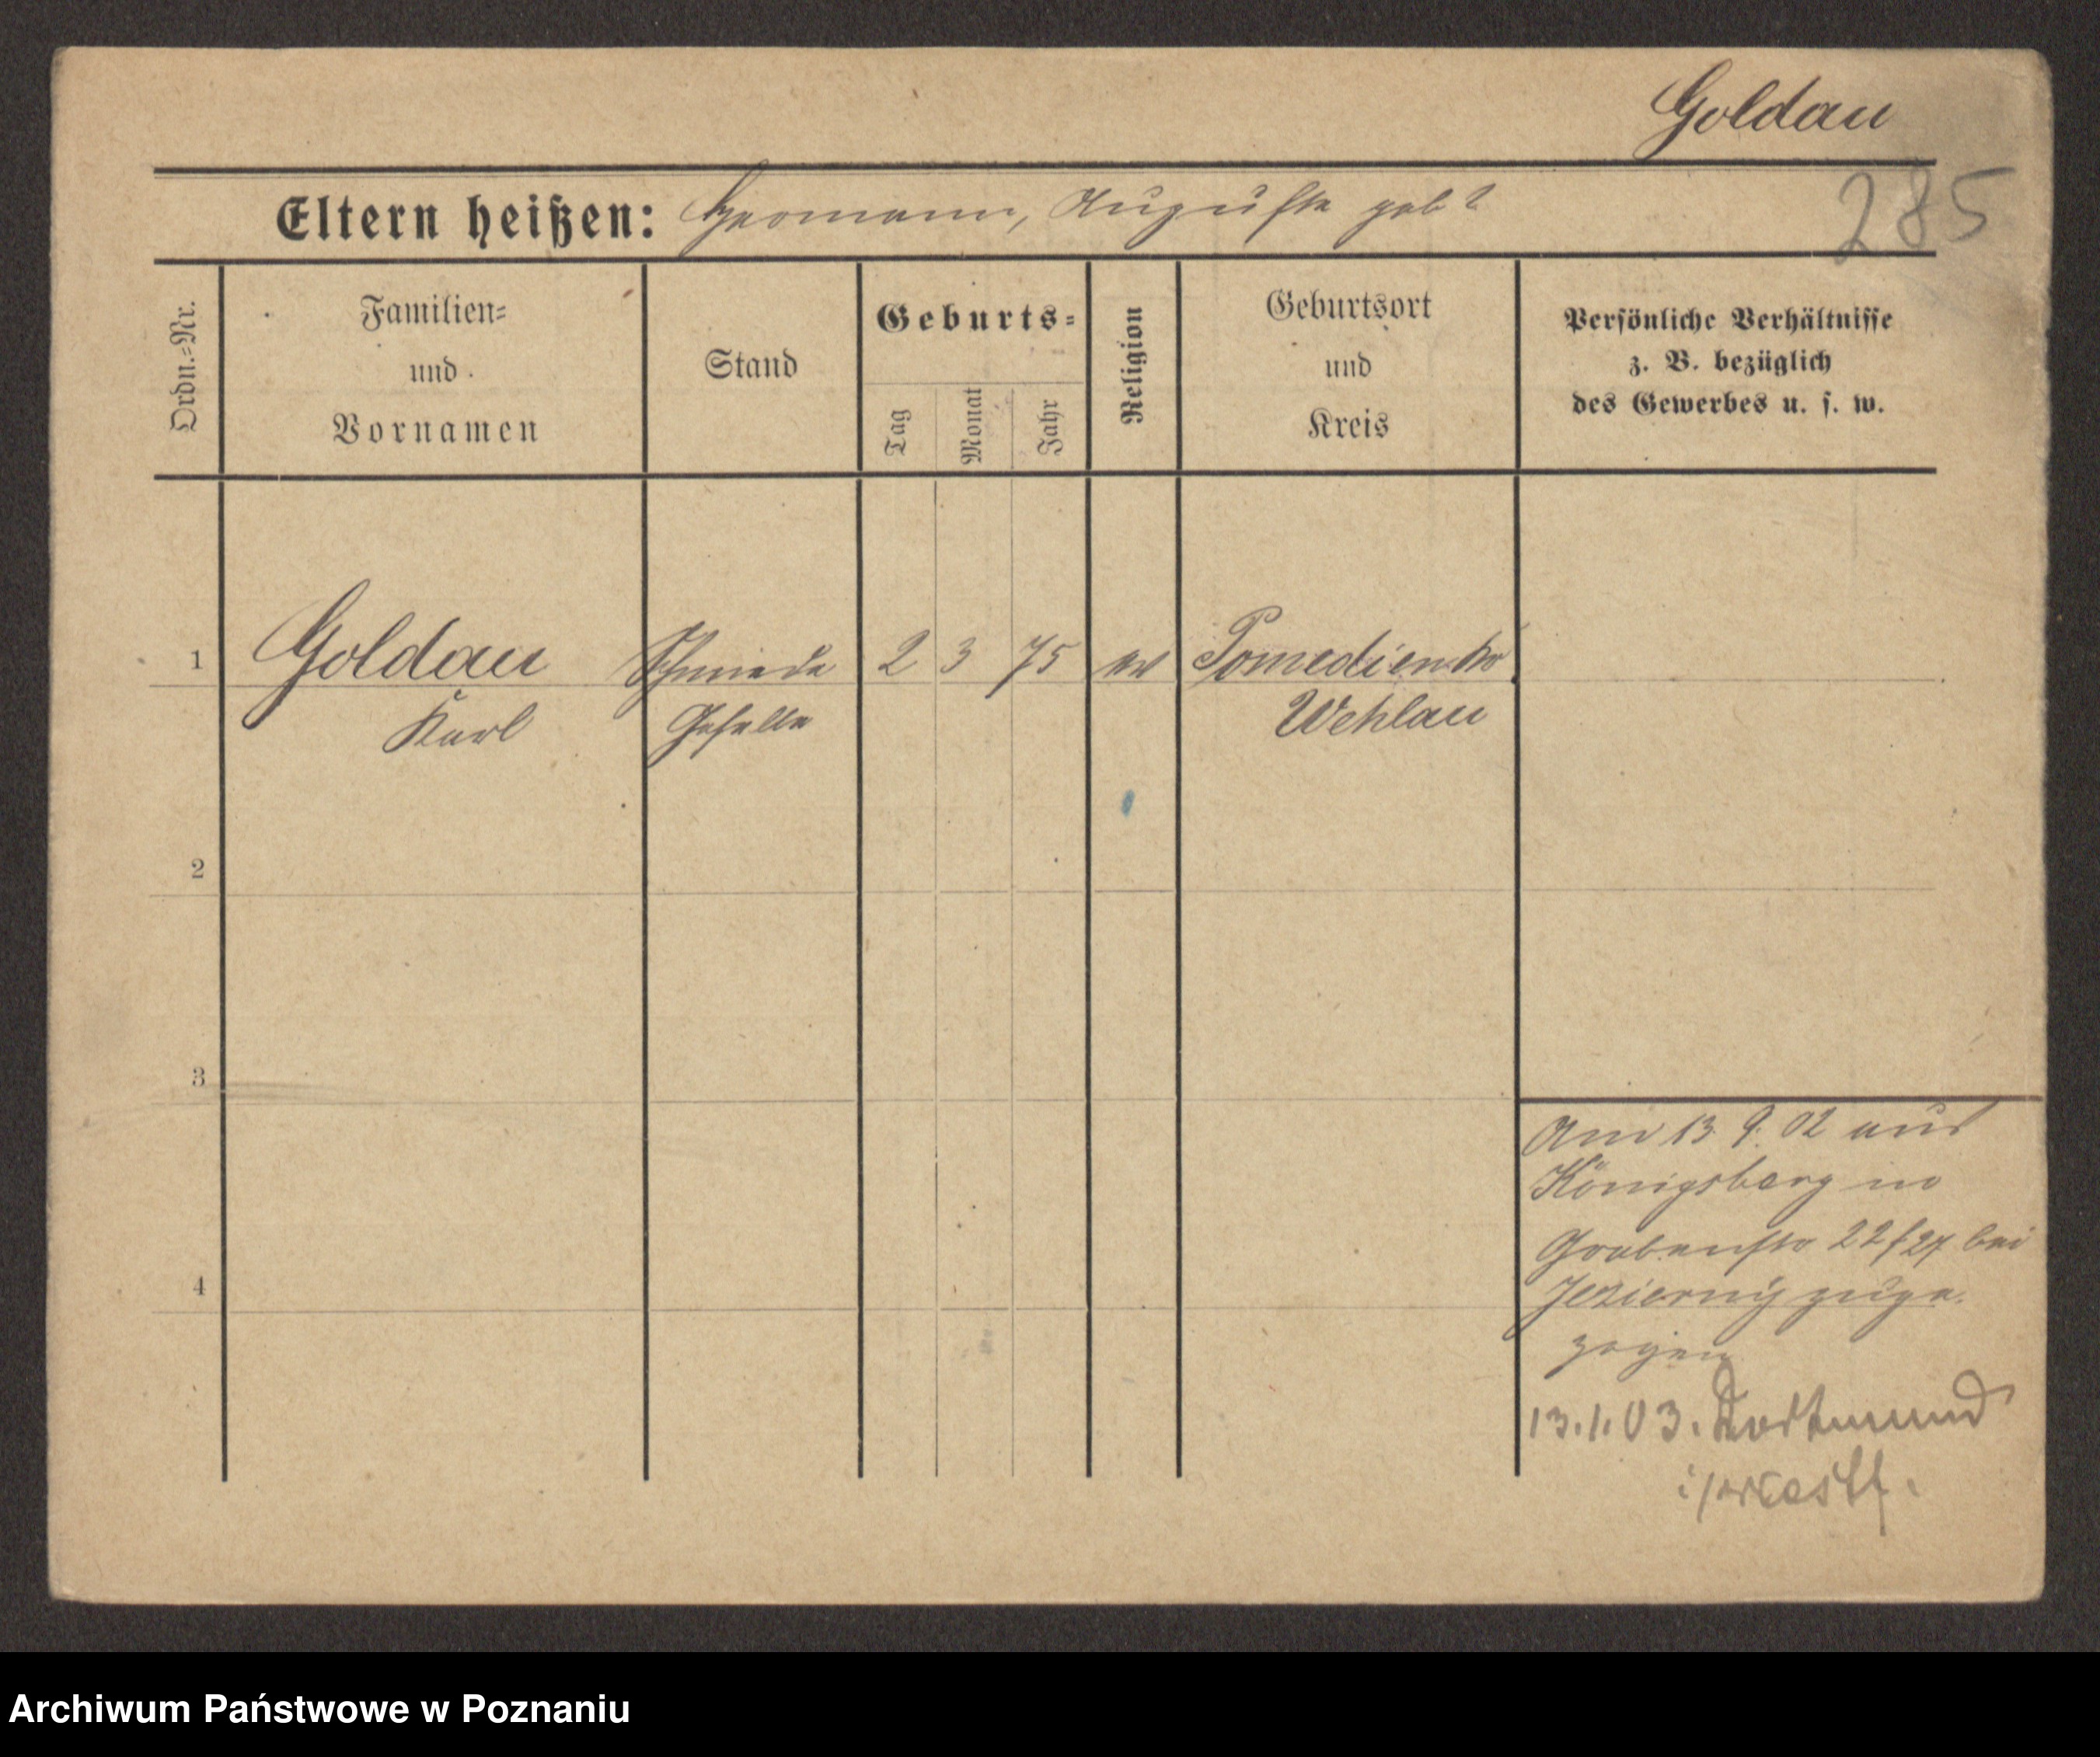 Goldau
285
Eltern heißen: Hermann, Auguste geb ?
Ordn.=Nr.
Familien=
und
Vornamen
Stand
Geburts=
Tag
Monat
Jahr
Religion
Geburtsort
und
Kreis
Persönliche Verhältnisse
z. B. bezüglich
des Gewerbes u. s. w.
1 Goldau Schmiede 2 3 75 ev
Karl Geselle Wehlau
2
3
4
Am 13 9. 02 aus
Königsberg in
Grabenstr 22/27 bei
zuge.
zogen
13.1.03. Dortmund
Archiwum Państwowe w Poznaniu